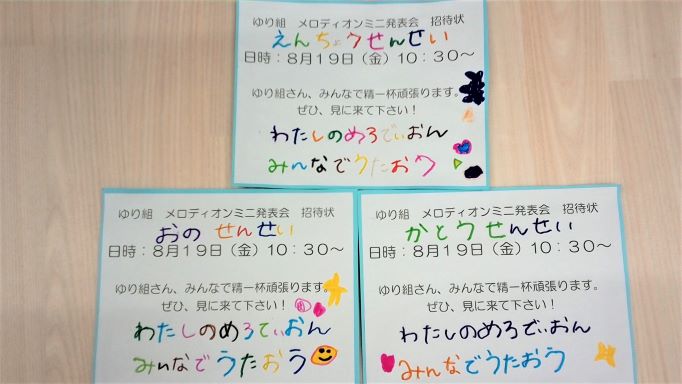 ゆり組　メロディオンミニ発表会　招待状
えんちょうせんせい
日時：8月19日（金）10：30～
ゆり組さん、みんなで精一杯頑張ります。
ぜひ、見に来て下さい！
わたしのめろでぃおん
みんなでうたおう
ゆり組　メロディオンミニ発表会　招待状
おの せんせい
日時：8月19日（金）10：30～
ゆり組さん、みんなで精一杯頑張ります。
ぜひ、見に来て下さい！
わたしのめろてぃおん
みんなでうたおう
ゆり組　メロディオンミニ発表会　招待状
かとうせんせい
日時：8月19日（金）10：30～
ゆり組さん、みんなで精一杯頑張ります。
ぜひ、見に来て下さい！
わたしのめろでぃおん
みんなでうたおう